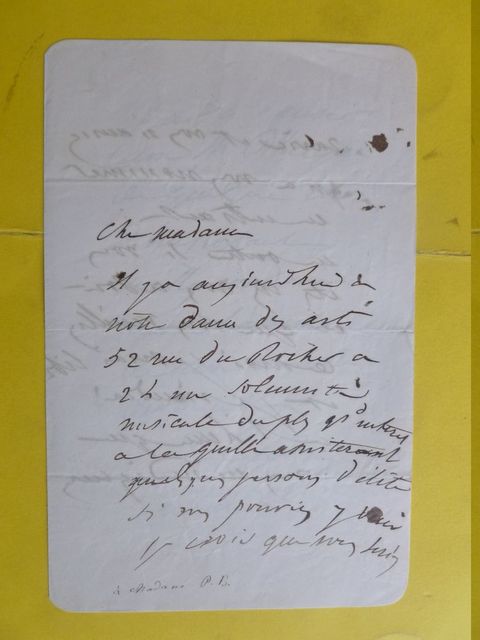 Che madame
Il y a aujourd'hui à
notre dame des arts
52 rue du Rocher a
2 h une solennité
musicale du plus gd interet
a laquelle assisteront
quelques persons d'élite
si vous pouviez y venir
je crois que vous
à Madame P. B.